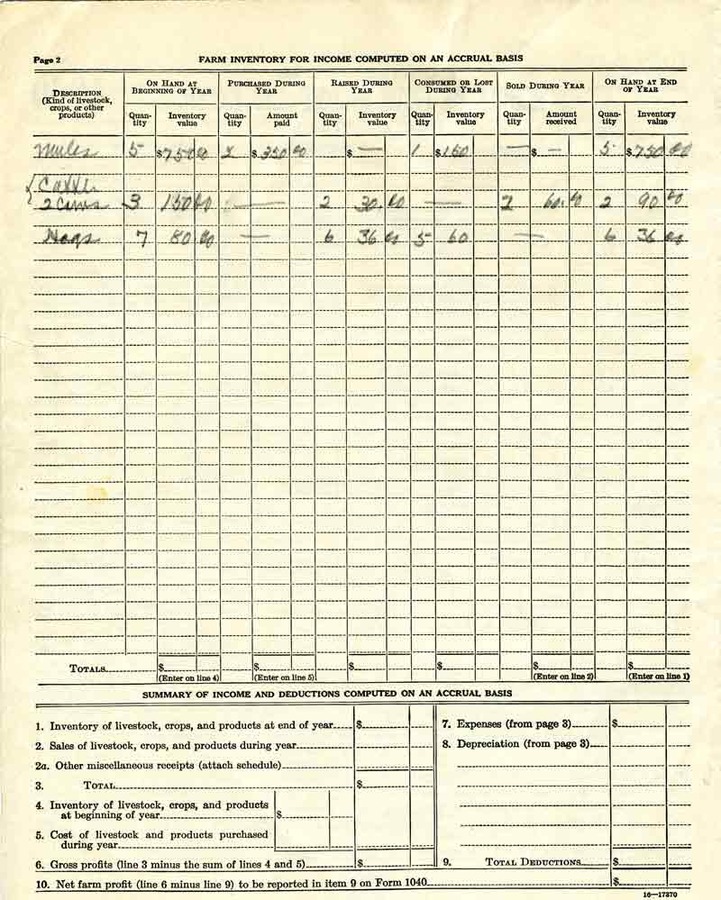 Page 2 FARM INVENTORY FOR INCOME COMPUTED ON AN ACCRUAL BASIS
DESCRIPTION (Kind of livestock, crops, or other products) ON HAND AT BEGINNING OF YEAR PURCHASED DURING YEAR RAISED DURING YEAR CONSUMED OR LOST DURING YEAR SOLD DURING YEAR ON HAND AT END OF YEAR
Quantity Inventory value Quantity Amount paid Quantity Inventory value Quantity Inventory value Quantity Amount received Quantity Inventory value
Mules 5 $750 00 2 $350 00 $ — 1 $150 — $ — 5 $750 00
{ Cattle
2 Cows 3 150 00 — 2 30.00 — 2 60.00 2 90 00
Hogs 7 80 00 — 6 36 00 5 60 — 6 36 00
TOTALS $ $ $ $ $ $
(Enter on line 4) (Enter on line 5) (Enter on line 2) (Enter on line 1)
SUMMARY OF INCOME AND DEDUCTIONS COMPUTED ON AN ACCRUAL BASIS
1. Inventory of livestock, crops, and products at end of year $
2. Sales of livestock, crops, and products during year
2a. Other miscellaneous receipts (attach schedule)
3. TOTAL $
4. Inventory of livestock, crops, and products
at beginning of year $
5. Cost of livestock and products purchased
during year
6. Gross profits (line 3 minus the sum of lines 4 and 5) $
7. Expenses (from page 3) $
8. Depreciation (from page 3)
9. TOTAL DEDUCTIONS $
10. Net farm profit (line 6 minus line 9) to be reported in item 9 on Form 1040 $
16—17870